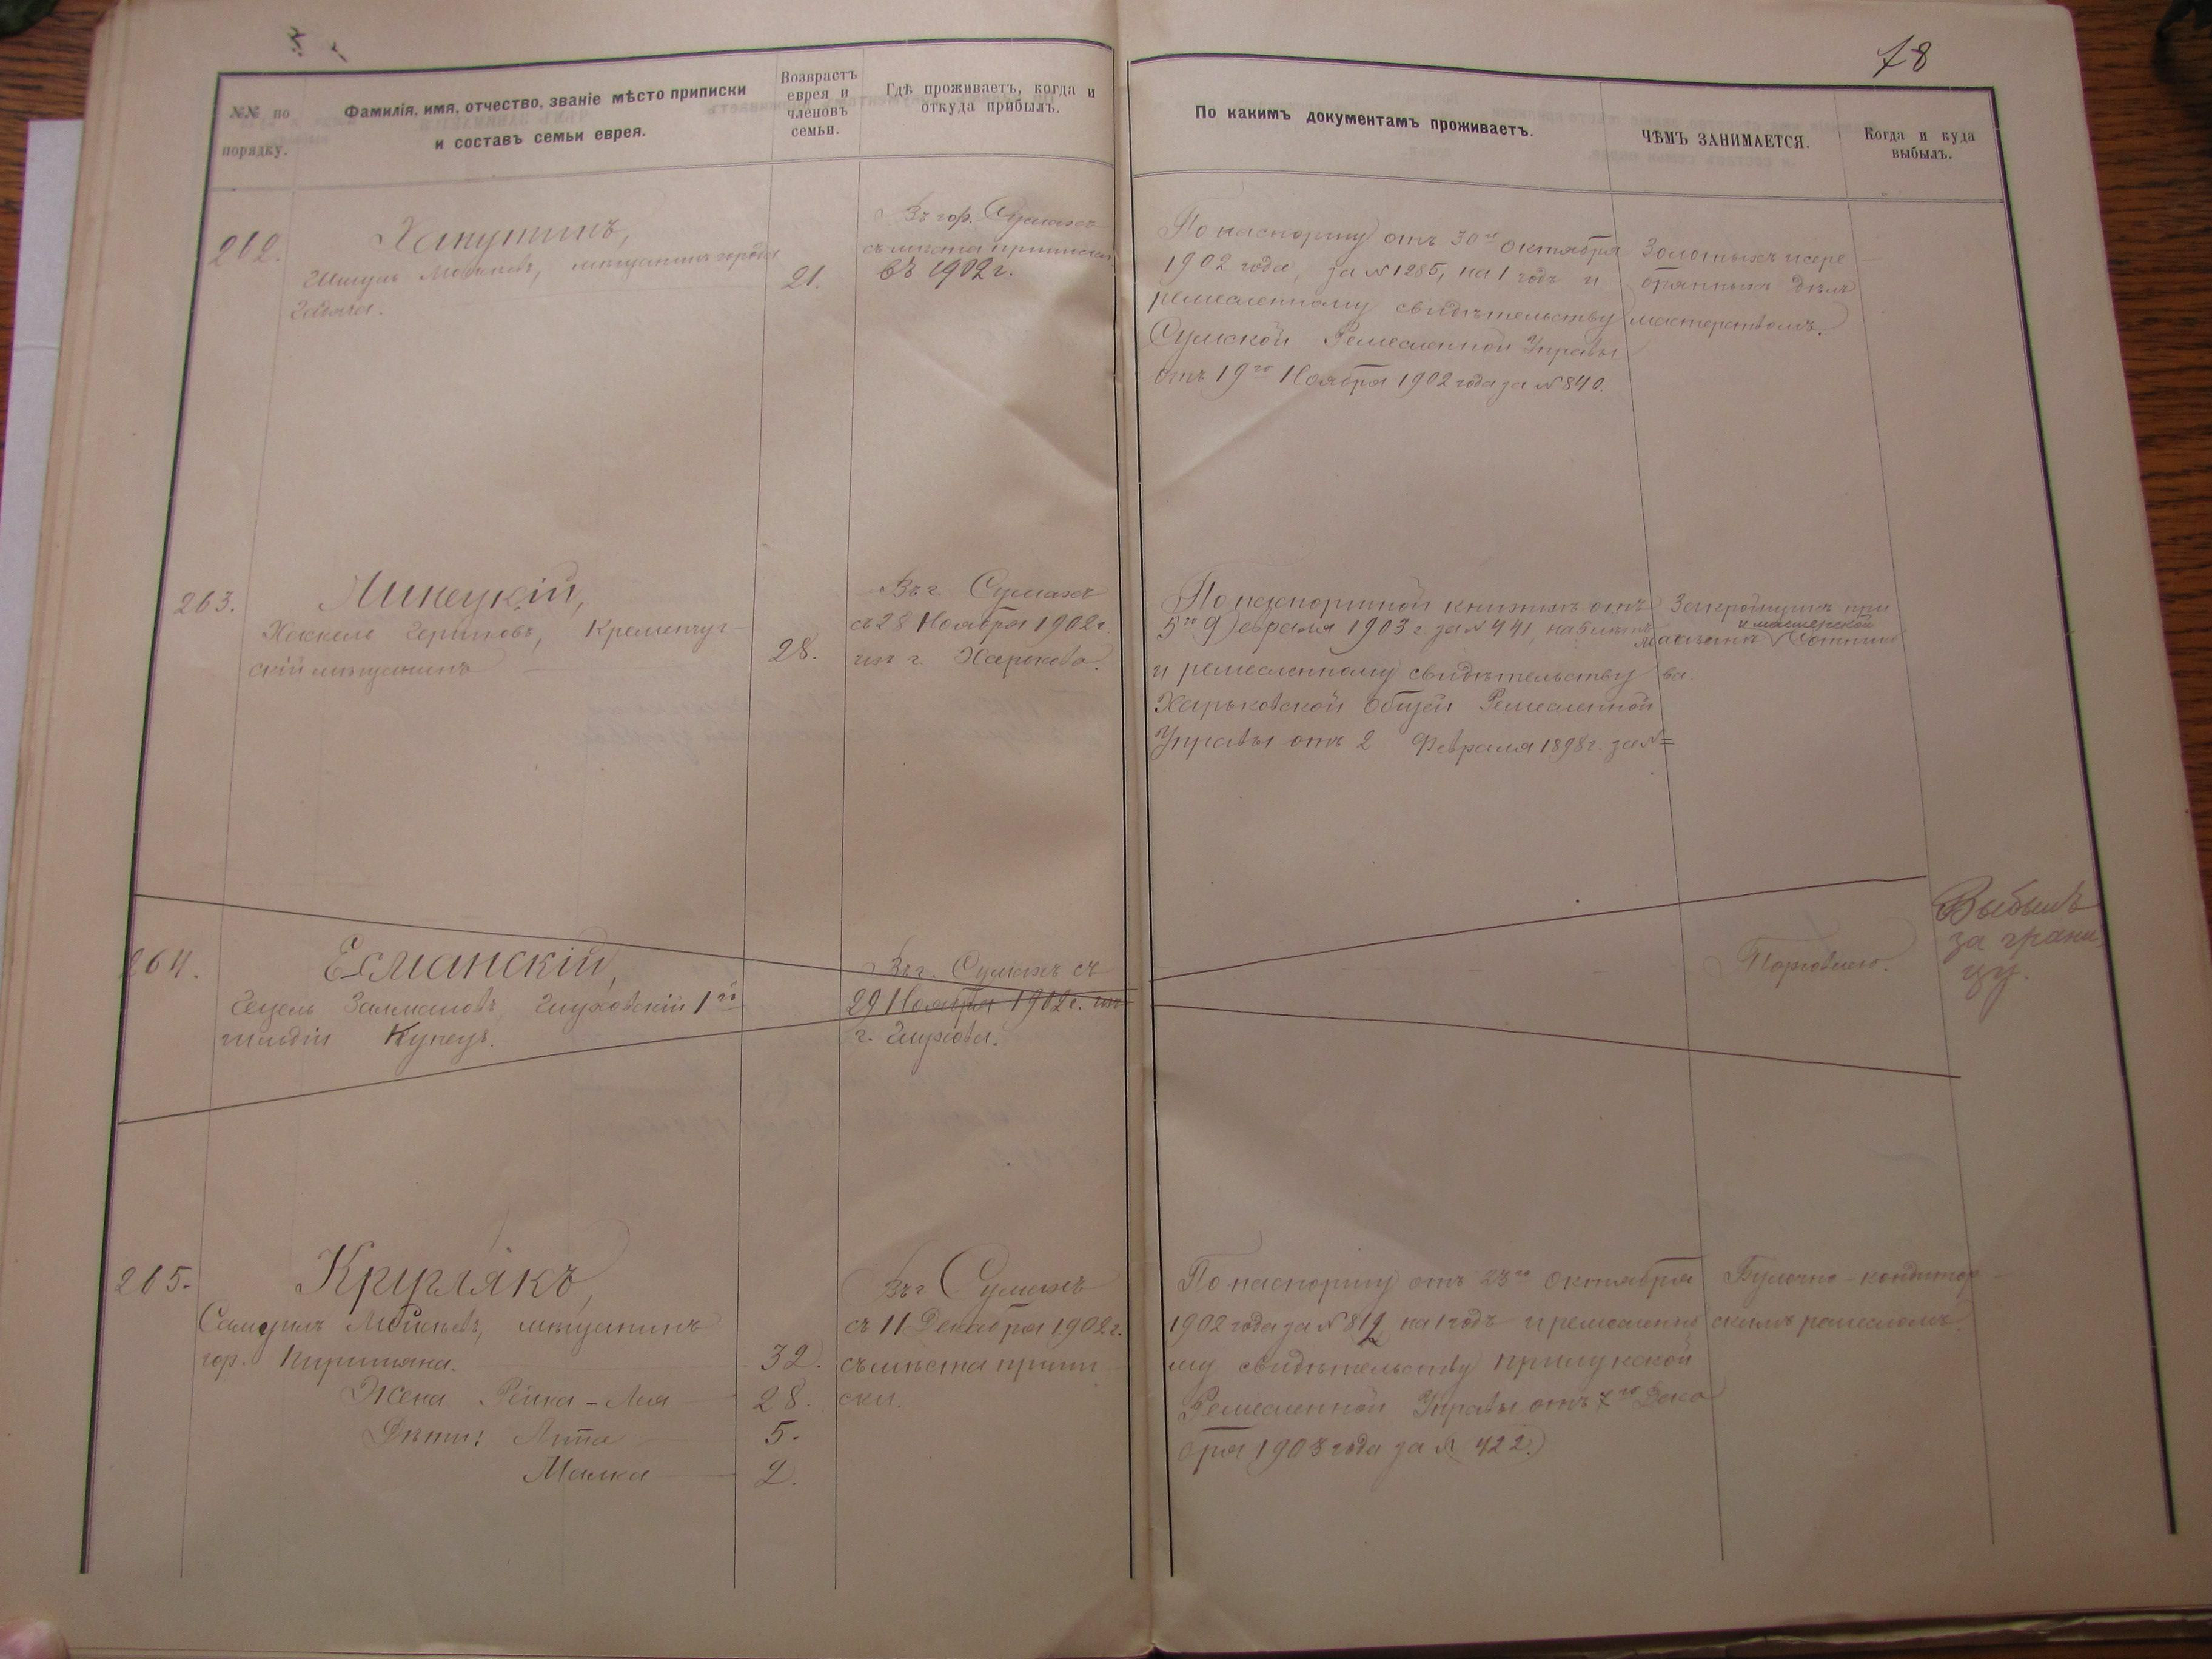 78
№№ по порядку.
Фамилія, имя, отчество, званіе мѣсто приписки
и составъ семьи еврея.
Возврастъ
еврея и
членовъ
семьи.
Гдѣ проживаетъ, когда и
откуда прибылъ.
По какимъ документамъ проживаетъ.
ЧѢМЪ ЗАНИМАЕТСЯ.
Когда и куда
выбылъ.
262.
Хапутинъ,
мѣщанинъ города
Гадяча.
21.
Въ гор. Сумахъ
съ мѣста приписки
въ 1902 г.
По паспорту отъ 30го октября
1902 года, за №1285, на 1 годъ и
ремесленному свидѣтельству
Сумской Ремесленной Управы
отъ 19го Ноября 1902 года за №840.
Золотыхъ и сере
бряныхъ дѣлъ
мастерствомъ.
263.
Линецкій,
Хаскель Кременчуг-
скій мѣщанинъ
28.
Въ г. Сумахъ
съ 28 Ноября 1902 г.
изъ г. Харькова.
По паспортной книжкѣ отъ
5го Февраля 1903 г. за №441, на 5 лѣтъ
и ремесленному свидѣтельству
Харьковской Общей Ремесленной
Управы отъ 2 Февраля 1898 г. за №=
Закройщикъ при
и мастерской
магазинѣ
ва.
264.
Есманскій,
Гецель Залмановъ, Глуховскій 1й
гильдіи Купецъ.
Въ г. Сумахъ съ
29 Ноября 1902 г. изъ
г. Глухова.
Торговлею.
Выбылъ
за грани
цу.
265.
Круглякъ,
Самуилъ Мойсеевъ, мѣщанинъ
гор. Пирятина.
32.
Жена Рейка-Лея
28.
Дѣти: Лита
5.
Малка
2.
Въ г Сумахъ
съ 11 Декабря 1902 г.
съ мѣста припи
ски.
По паспорту отъ 23го Октября
1902 года за № на 1 годъ и ремесленно
му свидѣтельству Прилукской
Ремесленной Управы отъ 7го Дека
бря 1903 года за № 422.
Булочно-кондитор
скимъ ремесломъ.